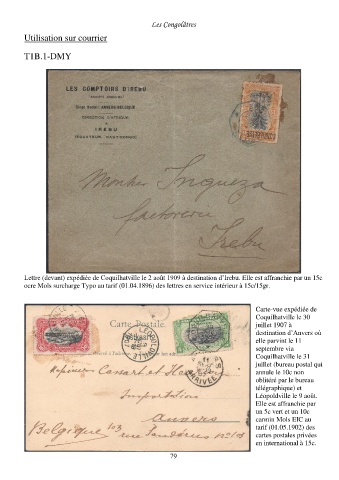 Les Congolâtres
Utilisation sur courrier
T1B.1-DMY
LES COMPTOIRS D'IREBU
Siège Social: ANVERS-BELGIQUE
DIRECTION D'AFRIQUE
À
IREBU
Monsieur Ingueza
factorerie
Irebu
Lettre (devant) expédiée de Coquilhatville le 2 août 1909 à destination d'Irebu. Elle est affranchie par un 15c
ocre Mols surcharge Typo au tarif (01.04.1896) des lettres en service intérieur à 15c/15gr.
Carte Postale.
Messieurs Cassart et
Importations
Anvers
Belgique 103 rue
Carte-vue expédiée de
Coquilhatville le 30
juillet 1907 à
destination d'Anvers où
elle parvint le 11
septembre via
Coquilhatville le 31
juillet (bureau postal qui
annule le 10c non
oblitéré par le bureau
télégraphique) et
Léopoldville le 9 août.
Elle est affranchie par
un 5c vert et un 10c
carmin Mols EIC au
tarif (01.05.1902) des
cartes postales privées
en international à 15c.
79